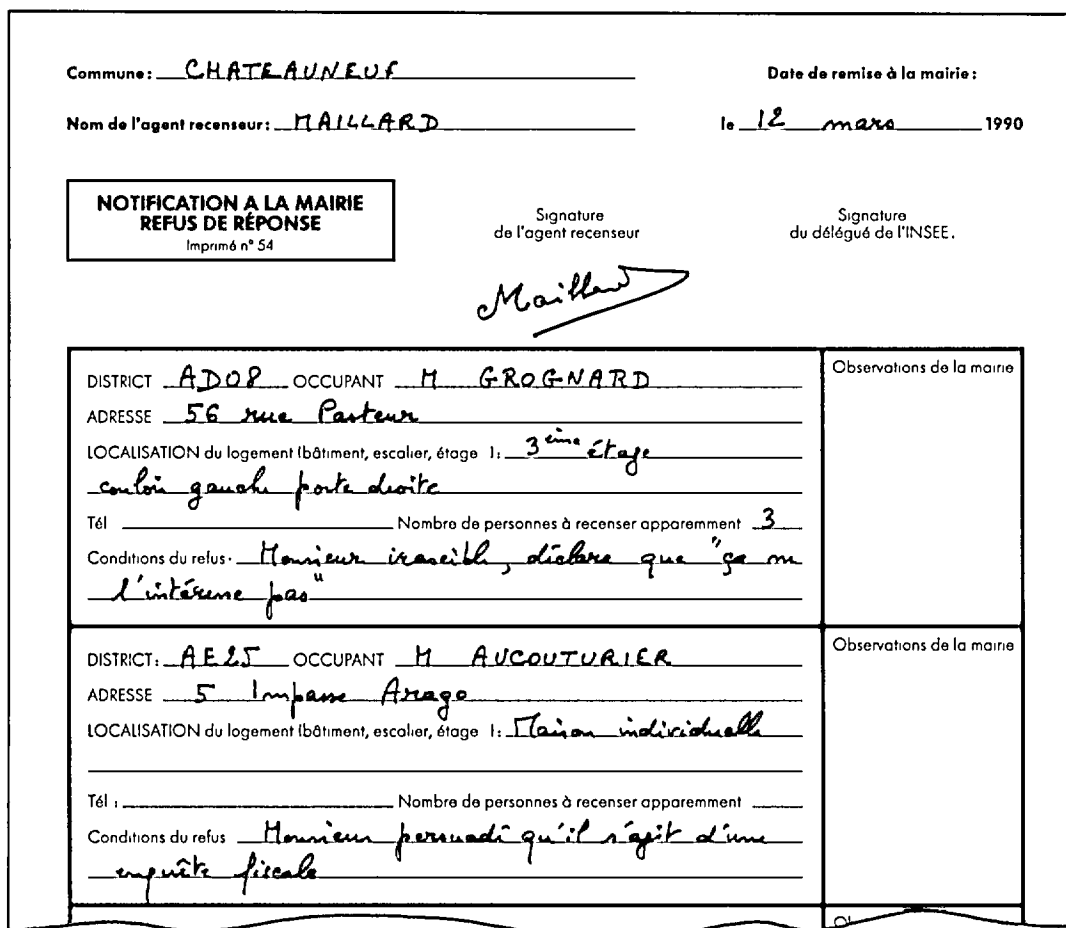 Commune: CHATEAUNEUF
Date de remise à la mairie:
Nom de l'agent recenseur: MAILLARD
le 12 mars 1990
NOTIFICATION A LA MAIRIE
REFUS DE RÉPONSE
Imprimé n° 54
Signature
de l'agent recenseur
Signature
du délégué de l'INSEE.
Maillard
DISTRICT AD08 OCCUPANT M GROGNARD
ADRESSE 56 rue Pasteur
LOCALISATION du logement (bâtiment, escalier, étage ): 3ème étage
couloir gauche porte droite
Tél Nombre de personnes à recenser apparemment 3
Conditions du refus. Monsieur irascible, déclare que "ça ne
l'intéresse pas"
Observations de la mairie
DISTRICT: AE25 OCCUPANT M AUCOUTURIER
ADRESSE 5 Impasse Arago
LOCALISATION du logement (bâtiment, escalier, étage ): Maison individuelle
Tél : Nombre de personnes à recenser apparemment
Conditions du refus Monsieur persuadé qu'il s'agit d'une
enquête fiscale
Observations de la mairie